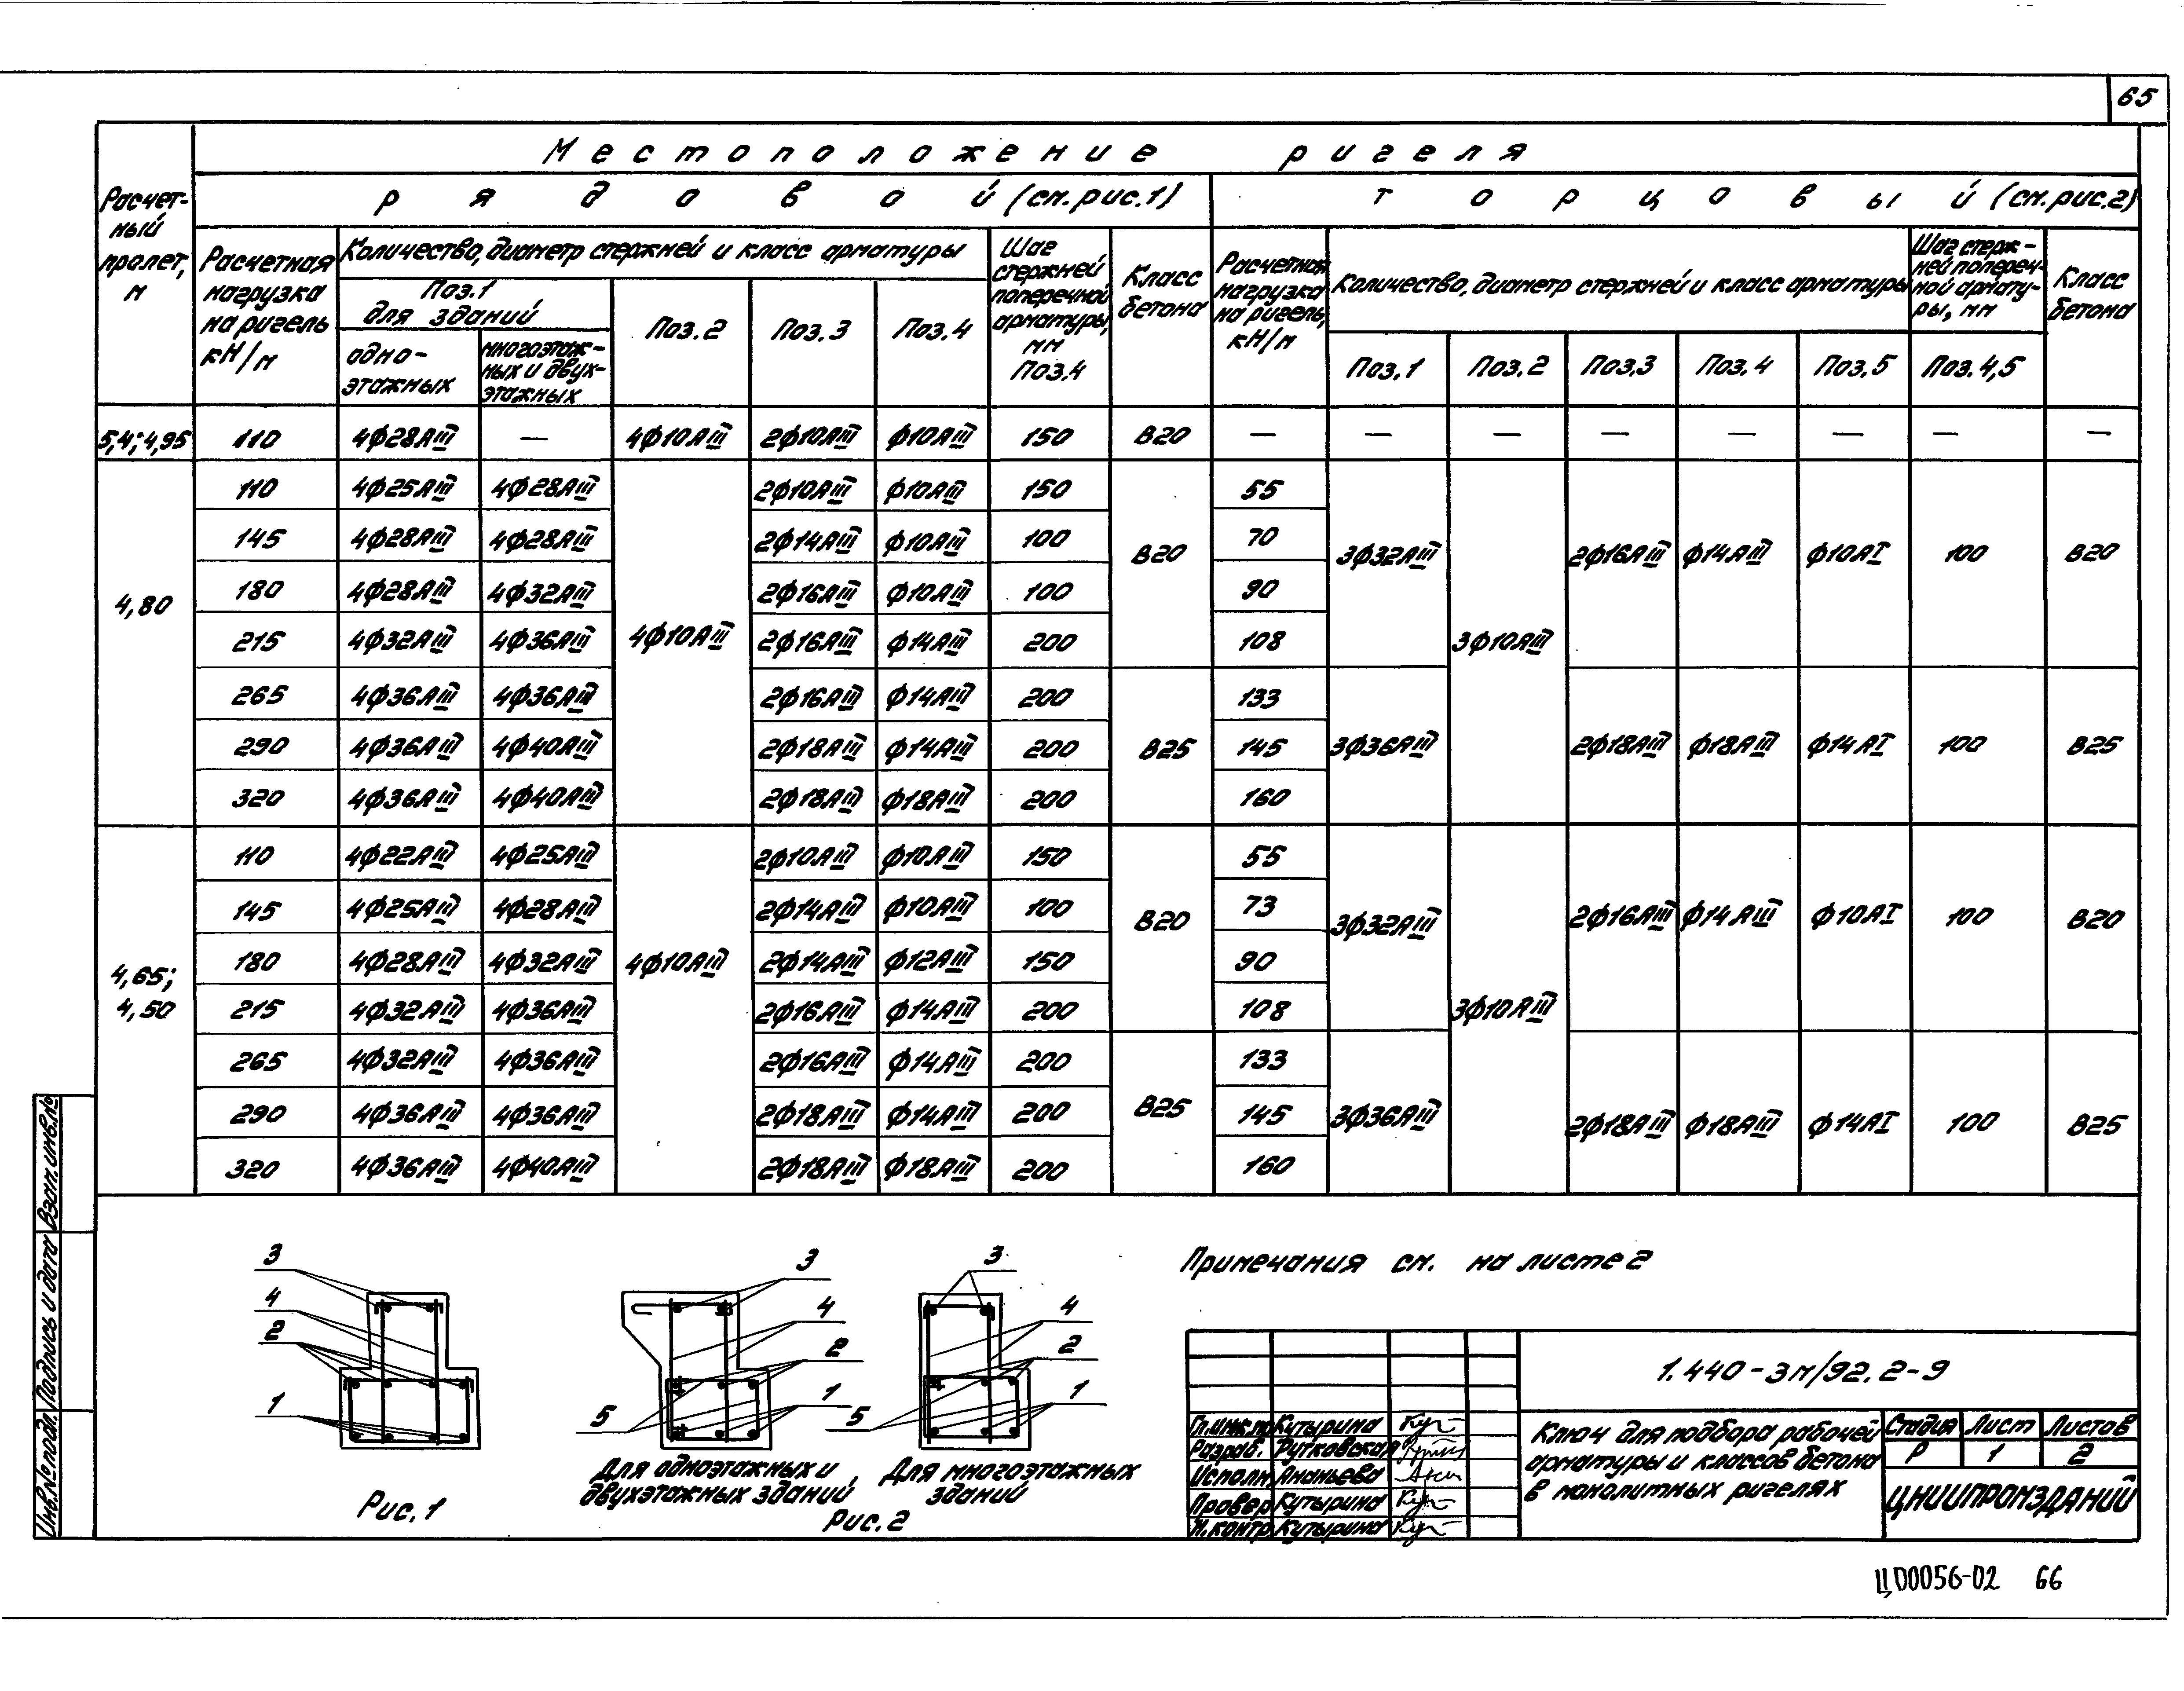 65
Местоположение ригеля
Расчетный пролет, м
рядовой (см. рис. 1)
торцовый (см. рис. 2)
Расчетная нагрузка на ригель кН/м
Количество, диаметр стержней и класс арматуры
Шаг стержней поперечной арматуры, мм Поз.4
Класс бетона
Расчетная нагрузка на ригель, кН/м
Количество, диаметр стержней и класс арматуры
Шаг стержней поперечной арматуры, мм
Класс бетона
Поз.1 для зданий
Поз.2 Поз.3 Поз.4
одноэтажных
многоэтажных и двухэтажных
Поз.1 Поз.2 Поз.3 Поз.4 Поз.5 Поз.4,5
5,4; 4,95 110 4ф28АIII — 4ф10АIII 2ф10АIII ф10АIII 150 В20 — — — — — — — —
4,80
110 4ф25АIII 4ф28АIII 2ф10АIII ф10АIII 150 55
145 4ф28АIII 4ф28АIII 2ф14АIII ф10АIII 100 70
В20 3ф32АIII 2ф16АIII ф14АIII ф10АI 100 В20
180 4ф28АIII 4ф32АIII 2ф16АIII ф10АIII 100 90
215 4ф32АIII 4ф36АIII 4ф10АIII 2ф16АIII ф14АIII 200 108 3ф10АIII
265 4ф36АIII 4ф36АIII 2ф16АIII ф14АIII 200 133
290 4ф36АIII 4ф40АIII 2ф18АIII ф14АIII 200 В25 145 3ф36АIII 2ф18АIII ф18АIII ф14АI 100 В25
320 4ф36АIII 4ф40АIII 2ф18АIII ф18АIII 200 160
4,65; 4,50
110 4ф22АIII 4ф25АIII 2ф10АIII ф10АIII 150 55
145 4ф25АIII 4ф28АIII 2ф14АIII ф10АIII 100 В20 73 3ф32АIII 2ф16АIII ф14АIII ф10АI 100 В20
180 4ф28АIII 4ф32АIII 4ф10АIII 2ф14АIII ф12АIII 150 90
215 4ф32АIII 4ф36АIII 2ф16АIII ф14АIII 200 108 3ф10АIII
265 4ф32АIII 4ф36АIII 2ф16АIII ф14АIII 200 133
290 4ф36АIII 4ф36АIII 2ф18АIII ф14АIII 200 В25 145 3ф36АIII 2ф18АIII ф18АIII ф14АI 100 В25
320 4ф36АIII 4ф40АIII 2ф18АIII ф18АIII 200 160
3
4
2
1
Рис. 1
3
4
2
1
5
Для одноэтажных и
двухэтажных зданий,
3
4
2
1
5
Для многоэтажных
зданий
Рис. 2
Примечания см. на листе 2
1.440-3м/92.2-9
Гл.инж.пр Кутырина
Разраб. Рутковская
Исполн Ананьева
Провер Кутырина
Н.контр Кутырина
Ключ для подбора рабочей
арматуры и классов бетона
в монолитных ригелях
Стадия Лист Листов
Р 1 2
ЦНИИПРОМЗДАНИЙ
Инв.№ подл. Подпись и дата Взам.инв.№
ЦД0056-02 66